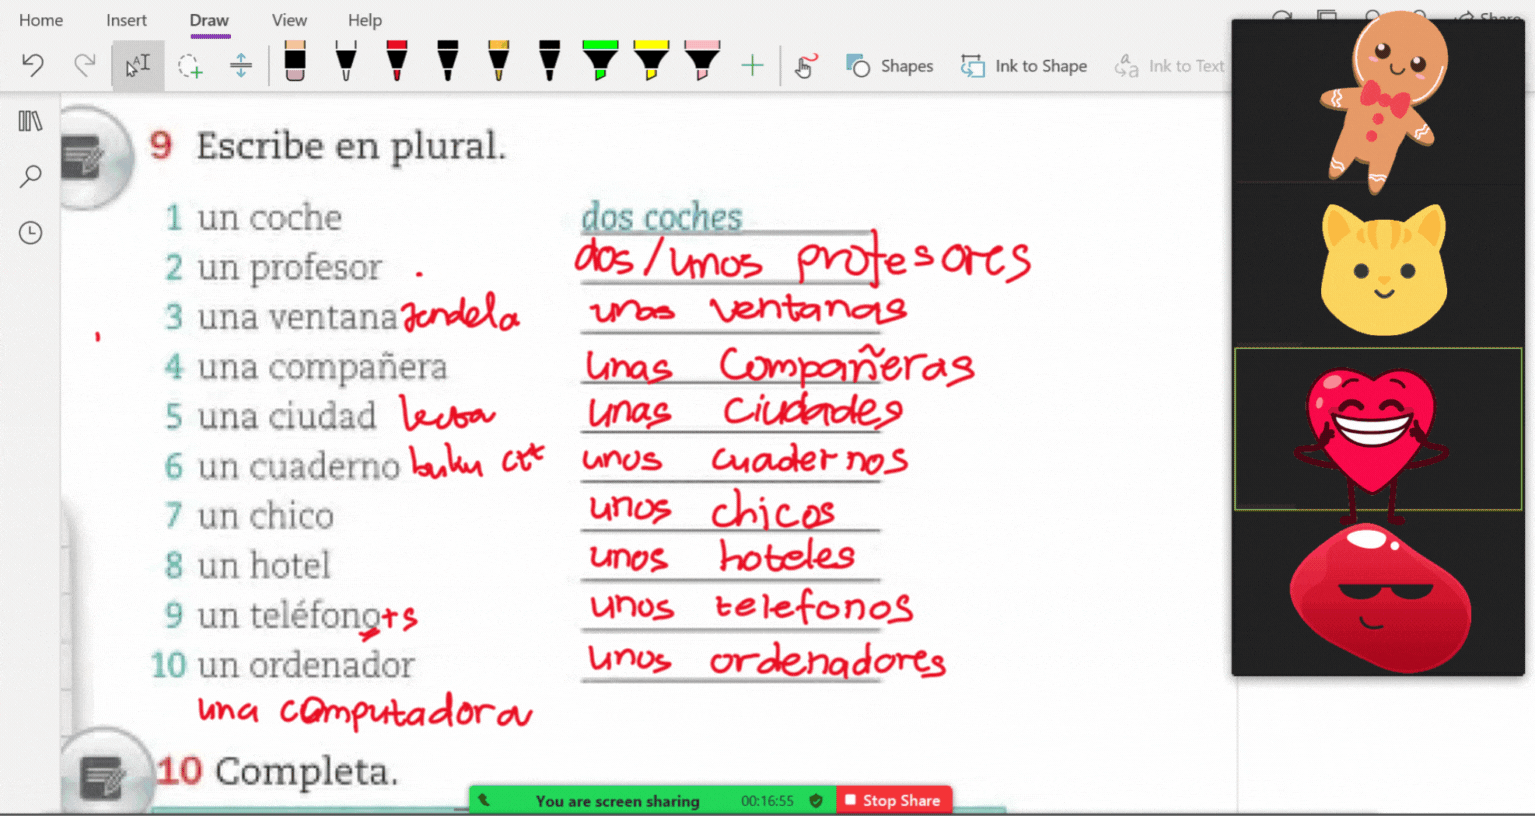 Home Insert Draw View Help
Share
Shapes Ink to Shape Ink to Text
9 Escribe en plural.
1 un coche dos coches
2 un profesor dos/unos profesores
3 una ventana Jendela unas ventanas
4 una compañera unas compañeras
5 una ciudad unas ciudades
6 un cuaderno buku ctt unos cuadernos
7 un chico unos chicos
8 un hotel unos hoteles
9 un teléfono+s unos telefonos
10 un ordenador unos ordenadores
una computadora
10 Completa.
You are screen sharing 00:16:55 Stop Share